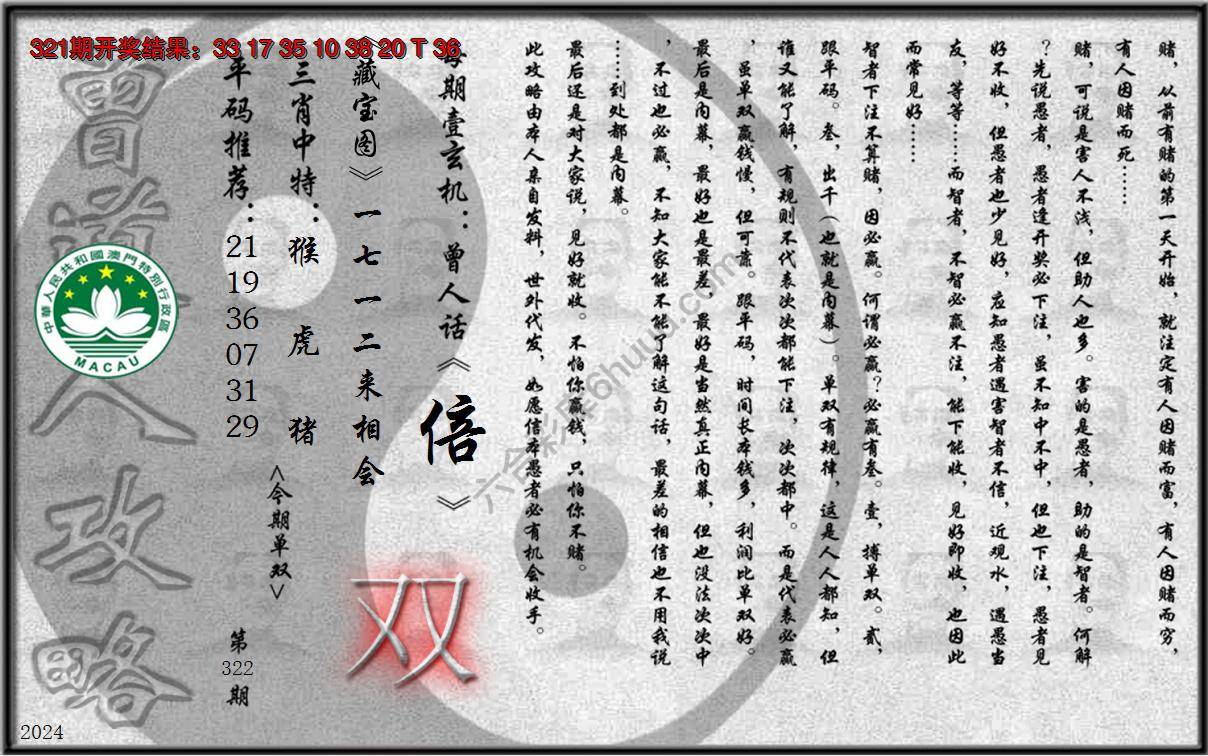 321期开奖结果：33 17 35 10 38 20 T 36
赌，从前有赌的第一天开始，就注定有人因赌而富，有人因赌而穷，
有人因赌而死……
赌，可说是害人不浅，但助人也多。害的是愚者，助的是智者。何解
？先说愚者，愚者逢开奖必下注，虽不知中不中，但也下注，愚者见
好不收，但愚者也少见好，应知愚者遇害智者不信，近观水，遇愚当
友，等等……而智者，不智必赢不注，能下能收，见好即收，也因此
而常见好……
智者下注不算赌，因必赢。何谓必赢？必赢有叁。壹，搏单双。贰，
跟平码。叁，出千（也就是内幕）。单双有规律，这是人人都知，但
谁又能了解，有规则不代表次次都能下注，次次都中。而是代表必赢
，虽单双赢钱慢，但可靠。跟平码，时间长本钱多，利润比单双好。
最后是内幕，最好也是最差，最好是当然真正内幕，但也没法次次中
，不过也必赢，不知大家能不能了解这句话，最差的相信也不用我说
……到处都是内幕。
最后还是对大家说，见好就收。不怕你赢钱，只怕你不赌。
此攻略由本人亲自发料，世外代发，如愿信本愚者必有机会收手。
每期壹玄机：曾人话《倍》
《藏宝图》一七一二来相会
双
三肖中特：猴 虎 猪
<今期单双>
平码推荐：21 19 36 07 31 29
第322期
曾道人攻略
中華人民共和國澳門特別行政區
MACAU
2024